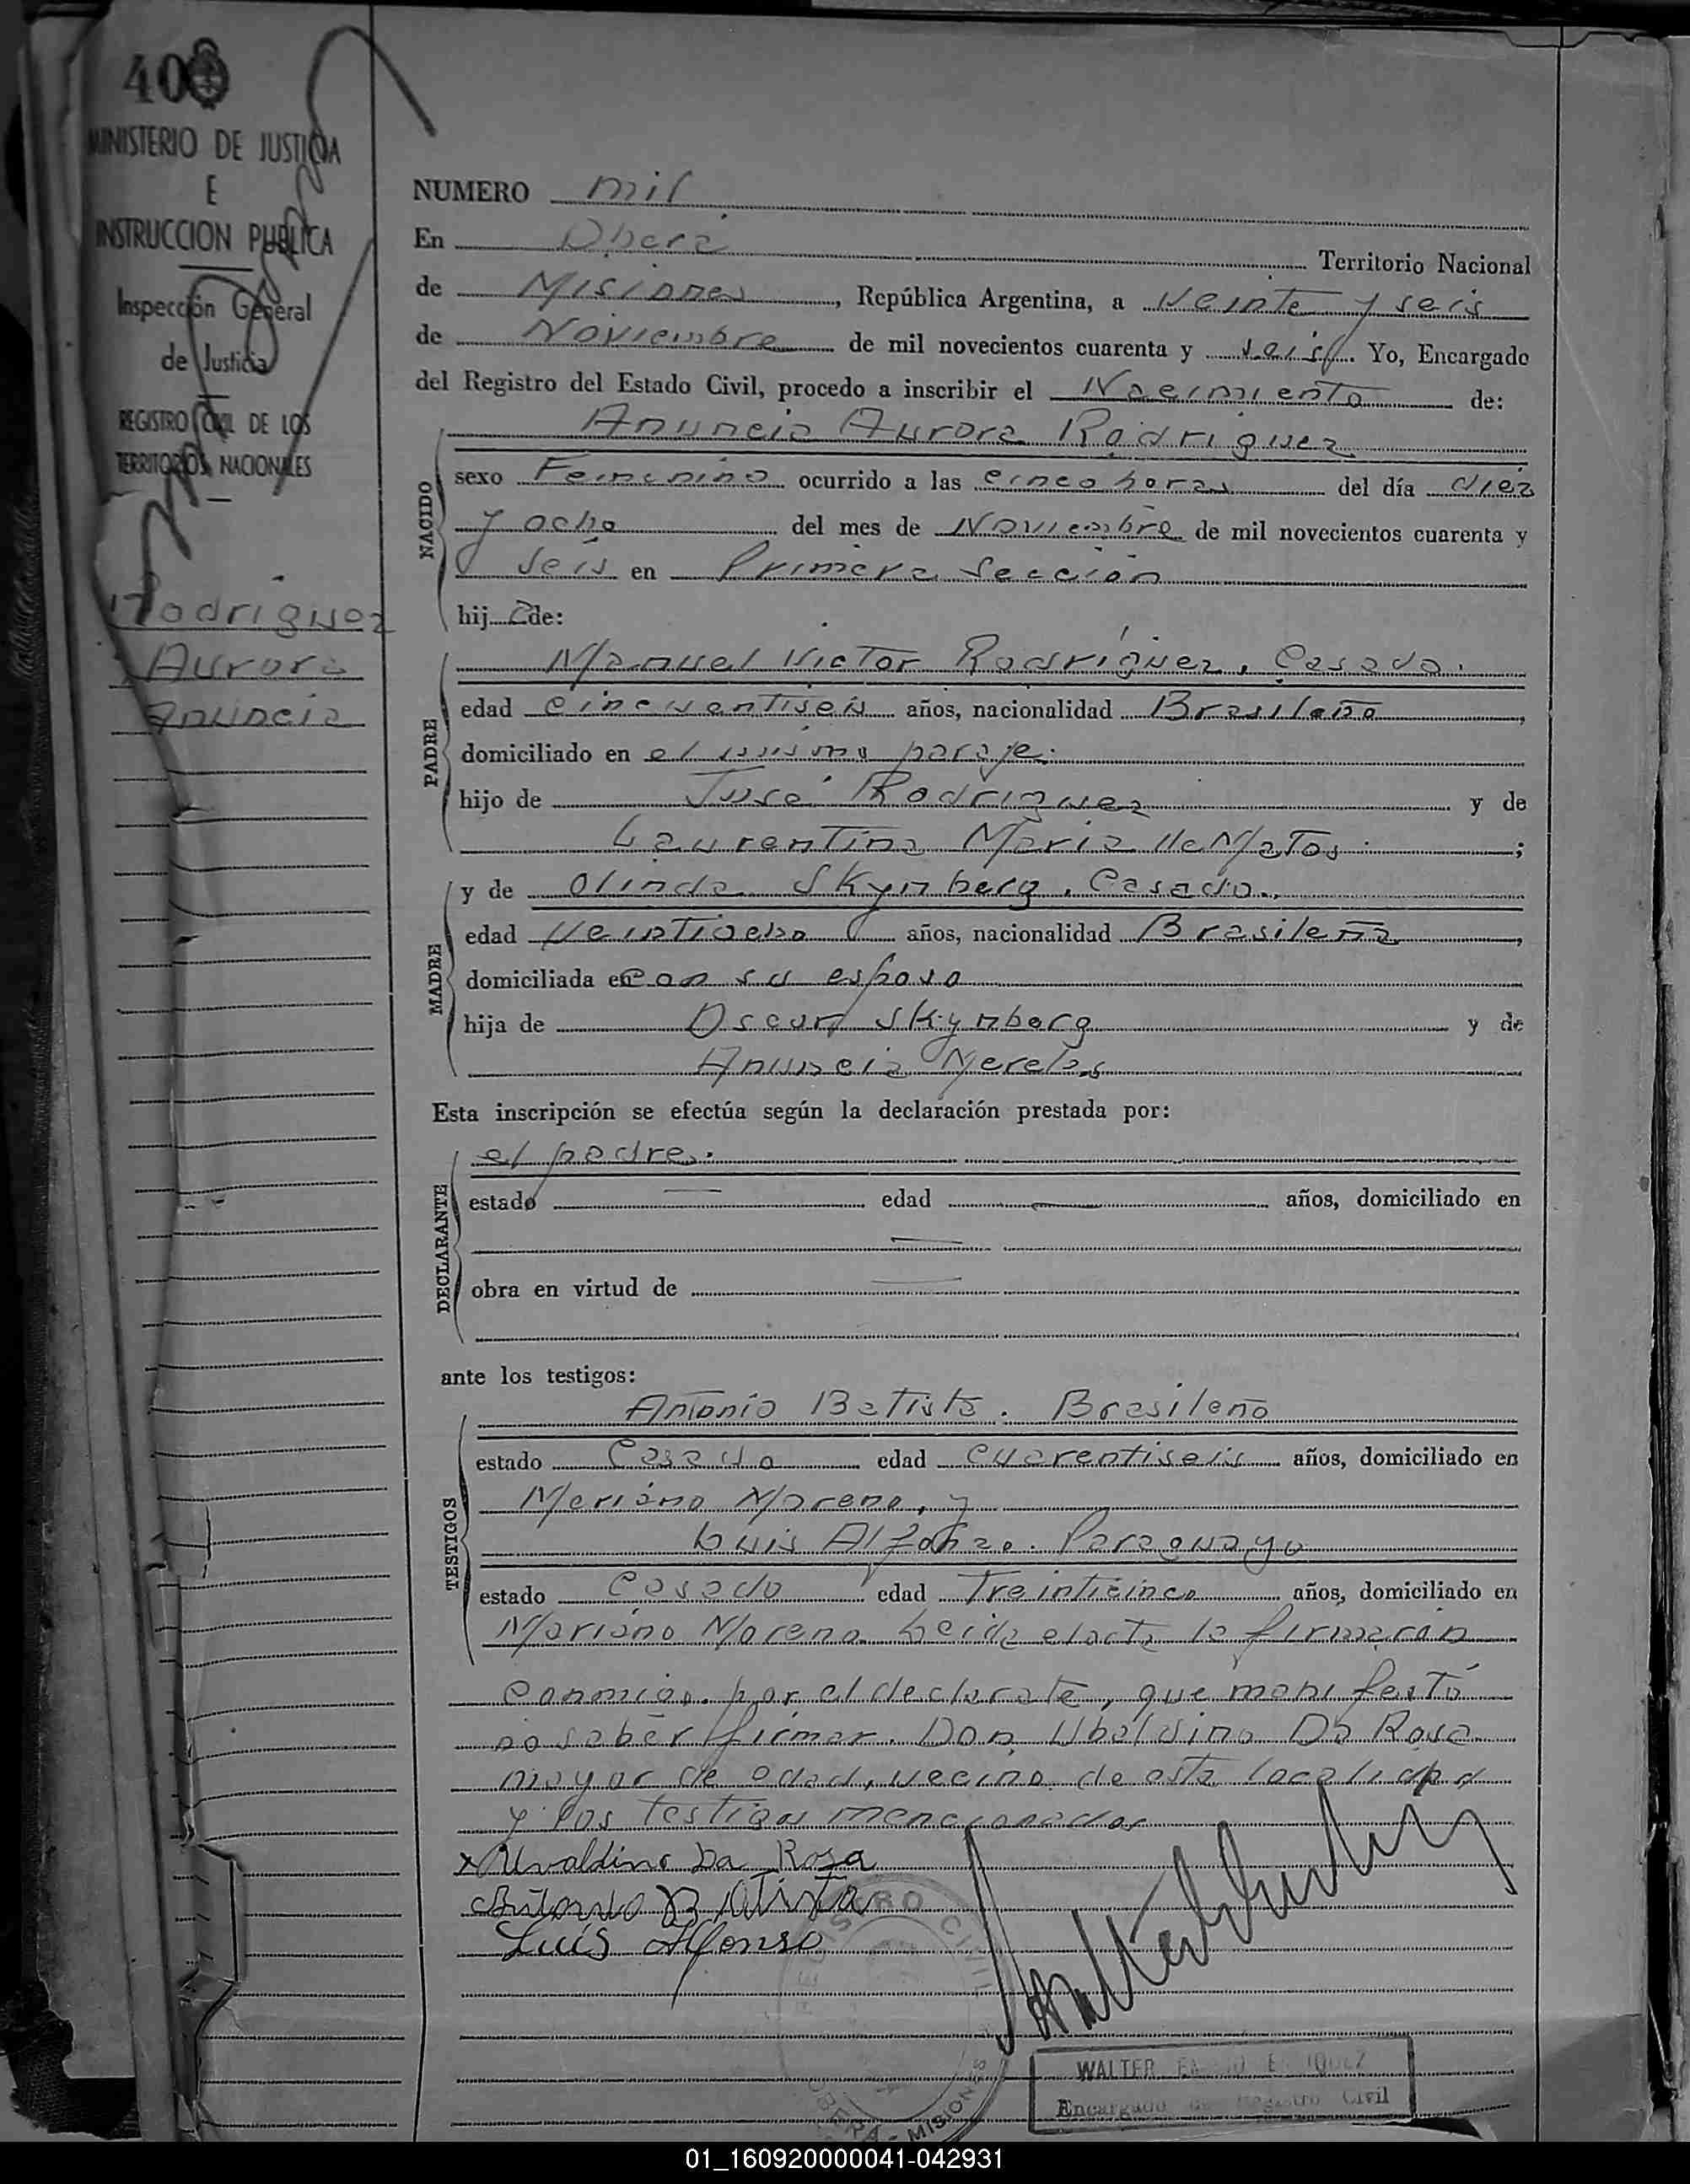 400
MINISTERIO DE JUSTICIA
E
INSTRUCCION PUBLICA
Inspección General
de Justicia
REGISTRO CIVIL DE LOS
TERRITORIOS NACIONALES
Rodriguez
Aurora
Anuncia
NUMERO mil
En Oberá Territorio Nacional
de Misiones, República Argentina, a veinte y seis
de Noviembre de mil novecientos cuarenta y seis. Yo, Encargado
del Registro del Estado Civil, procedo a inscribir el Nacimiento de:
Anuncia Aurora Rodriguez
NACIDO
sexo Femenino ocurrido a las cinco horas del día diez
y ocho del mes de Noviembre de mil novecientos cuarenta y
seis en Primera Sección
hija de:
PADRE
Manuel Victor Rodríguez, Casado.
edad cincuentiseis años, nacionalidad Brasileño,
domiciliado en el mismo paraje.
hijo de José Rodriguez y de
Laurentina Maria de Matos;
MADRE
y de Olinda Skymberg, Casada.
edad veintiocho años, nacionalidad Brasileña,
domiciliada en con su esposo
hija de Oscar Skymberg y de
Anuncia
Esta inscripción se efectúa según la declaración prestada por:
DECLARANTE
el padre.
estado — edad — años, domiciliado en
—
obra en virtud de —
ante los testigos:
TESTIGOS
Antonio Batista. Brasileño
estado Casado edad cuarentiseis años, domiciliado en
Mariano Moreno, y
Luis Alfonzo. Paraguayo
estado Casado edad Treinticinco años, domiciliado en
Mariano Moreno. Leida el acta la firmarón
conmigo. por el declarate, que manifestó
no saber firmar. Don Ubaldino Da Rosa
mayor de edad, vecino de esta localidad
y los testigos mencionados
x Uvaldino Da Rosa
Antonio Batista
Luis Alfonso
REGISTRO CIVIL
OBERA - MISIONES
WALTER
Encargado del Registro Civil
01_160920000041-042931